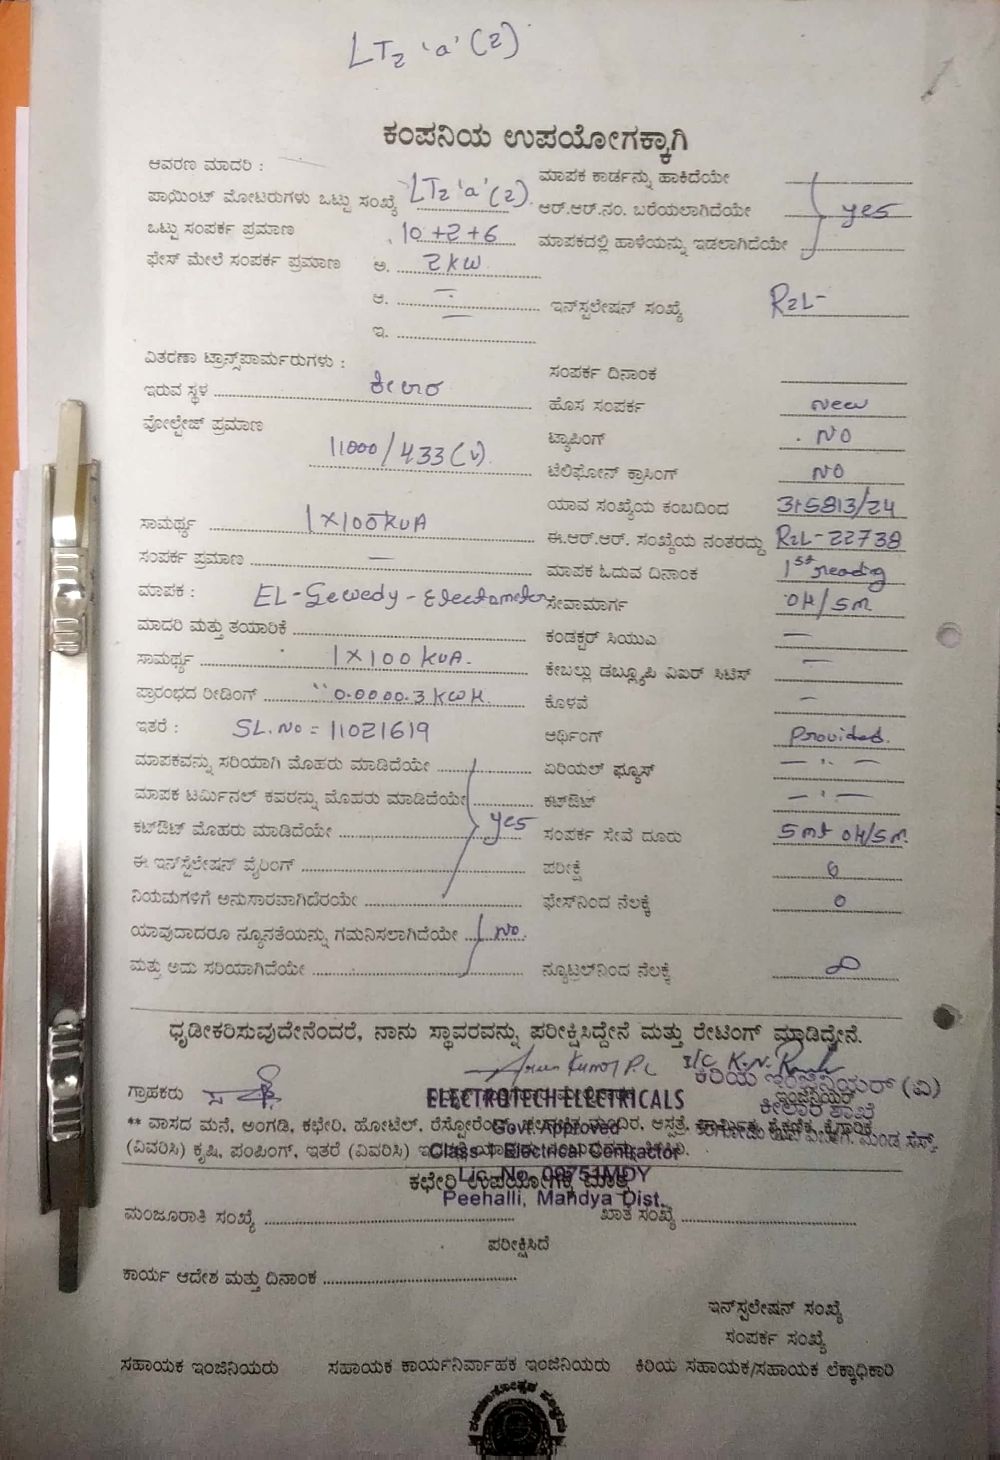 LT2 'a' (2)
ಕಂಪನಿಯ ಉಪಯೋಗಕ್ಕಾಗಿ
ಆವರಣ ಮಾದರಿ :
ಮಾಪಕ ಕಾರ್ಡನ್ನು ಹಾಕಿದೆಯೇ
ಪಾಯಿಂಟ್ ಮೋಟರುಗಳು ಒಟ್ಟು ಸಂಖ್ಯೆ LT2 'a' (2).
ಆರ್.ಆರ್.ನಂ. ಬರೆಯಲಾಗಿದೆಯೇ yes
ಒಟ್ಟು ಸಂಪರ್ಕ ಪ್ರಮಾಣ 10+2+6
ಮಾಪಕದಲ್ಲಿ ಹಾಳೆಯನ್ನು ಇಡಲಾಗಿದೆಯೇ
ಫೇಸ್ ಮೇಲೆ ಸಂಪರ್ಕ ಪ್ರಮಾಣ ಅ. 2KW
ಆ. –
ಇನ್‌ಸ್ಟಲೇಷನ್ ಸಂಖ್ಯೆ R2L-
ಇ. –
ವಿತರಣಾ ಟ್ರಾನ್ಸ್‌ಪಾರ್ಮರುಗಳು :
ಸಂಪರ್ಕ ದಿನಾಂಕ
ಇರುವ ಸ್ಥಳ ಕೀಲಾರ
ಹೊಸ ಸಂಪರ್ಕ New
ವೋಲ್ಟೇಜ್ ಪ್ರಮಾಣ 11000/433 (V).
ಟ್ಯಾಪಿಂಗ್ NO
ಟೆಲಿಫೋನ್ ಕ್ರಾಸಿಂಗ್ NO
ಯಾವ ಸಂಖ್ಯೆಯ ಕಂಬದಿಂದ 315813/24
ಸಾಮರ್ಥ್ಯ 1X100KVA
ಈ.ಆರ್.ಆರ್. ಸಂಖ್ಯೆಯ ನಂತರದ್ದು R2L-22738
ಸಂಪರ್ಕ ಪ್ರಮಾಣ –
ಮಾಪಕ ಓದುವ ದಿನಾಂಕ 1st reading
ಮಾಪಕ : EL-Sewedy-Electrometer
ಸೇವಾಮಾರ್ಗ OH/5m
ಮಾದರಿ ಮತ್ತು ತಯಾರಿಕೆ
ಕಂಡಕ್ಟರ್ ಸಿಯುಎ –
ಸಾಮರ್ಥ್ಯ 1X100KVA.
ಕೇಬಲ್ಲು ಡಬ್ಲ್ಯೂಪಿ ಎಐರ್ ಸಿಟಿಸ್ –
ಪ್ರಾರಂಭದ ರೀಡಿಂಗ್ 0.0000.3 KWH.
ಕೊಳವೆ –
ಇತರೆ : SL.No = 11021619
ಅರ್ಥಿಂಗ್ Provided.
ಮಾಪಕವನ್ನು ಸರಿಯಾಗಿ ಮೊಹರು ಮಾಡಿದೆಯೇ
ಏರಿಯಲ್ ಫ್ಯೂಸ್ – " –
ಮಾಪಕ ಟರ್ಮಿನಲ್ ಕವರನ್ನು ಮೊಹರು ಮಾಡಿದೆಯೇ
ಕಟ್‌ಔಟ್ – " –
ಕಟ್‌ಔಟ್ ಮೊಹರು ಮಾಡಿದೆಯೇ yes
ಸಂಪರ್ಕ ಸೇವೆ ದೂರು 5mt OH/5m.
ಈ ಇನ್‌ಸ್ಟಲೇಷನ್ ವೈರಿಂಗ್
ಪರೀಕ್ಷೆ
ನಿಯಮಗಳಿಗೆ ಅನುಸಾರವಾಗಿದೆರಯೇ
ಫೇಸ್‌ನಿಂದ ನೆಲಕ್ಕೆ 0
ಯಾವುದಾದರೂ ನ್ಯೂನತೆಯನ್ನು ಗಮನಿಸಲಾಗಿದೆಯೇ No.
ಮತ್ತು ಅದು ಸರಿಯಾಗಿದೆಯೇ
ನ್ಯೂಟ್ರಲ್‌ನಿಂದ ನೆಲಕ್ಕೆ ∞
ಧೃಡೀಕರಿಸುವುದೇನೆಂದರೆ, ನಾನು ಸ್ಥಾವರವನ್ನು ಪರೀಕ್ಷಿಸಿದ್ದೇನೆ ಮತ್ತು ರೇಟಿಂಗ್ ಮಾಡಿದ್ದೇನೆ.
Arun Kumar P.C
I/C K.N.
ಗ್ರಾಹಕರು
ಕಿರಿಯ ಇಂಜಿನಿಯರ್ (ವಿ)
ELECTROTECH ELECTRICALS
ಇಂಜಿನಿಯರ್
ಕೀಲಾರ ಶಾಖೆ
** ವಾಸದ ಮನೆ, ಅಂಗಡಿ, ಕಛೇರಿ. ಹೋಟೆಲ್,
Govt. Approved
(ವಿವರಿಸಿ) ಕೃಷಿ, ಪಂಪಿಂಗ್, ಇತರೆ (ವಿವರಿಸಿ)
Class-1 Electrical Contractor
Lic. No. 09751MDY
ಕಛೇರಿ ಉಪಯೋಗಕ್ಕೆ ಮಾತ್ರ
Peehalli, Mandya Dist.
ಮಂಜೂರಾತಿ ಸಂಖ್ಯೆ
ಖಾತೆ ಸಂಖ್ಯೆ
ಪರೀಕ್ಷಿಸಿದೆ
ಕಾರ್ಯ ಆದೇಶ ಮತ್ತು ದಿನಾಂಕ
ಇನ್‌ಸ್ಟಲೇಷನ್ ಸಂಖ್ಯೆ
ಸಂಪರ್ಕ ಸಂಖ್ಯೆ
ಸಹಾಯಕ ಇಂಜಿನಿಯರು
ಸಹಾಯಕ ಕಾರ್ಯನಿರ್ವಾಹಕ ಇಂಜಿನಿಯರು
ಕಿರಿಯ ಸಹಾಯಕ/ಸಹಾಯಕ ಲೆಕ್ಕಾಧಿಕಾರಿ